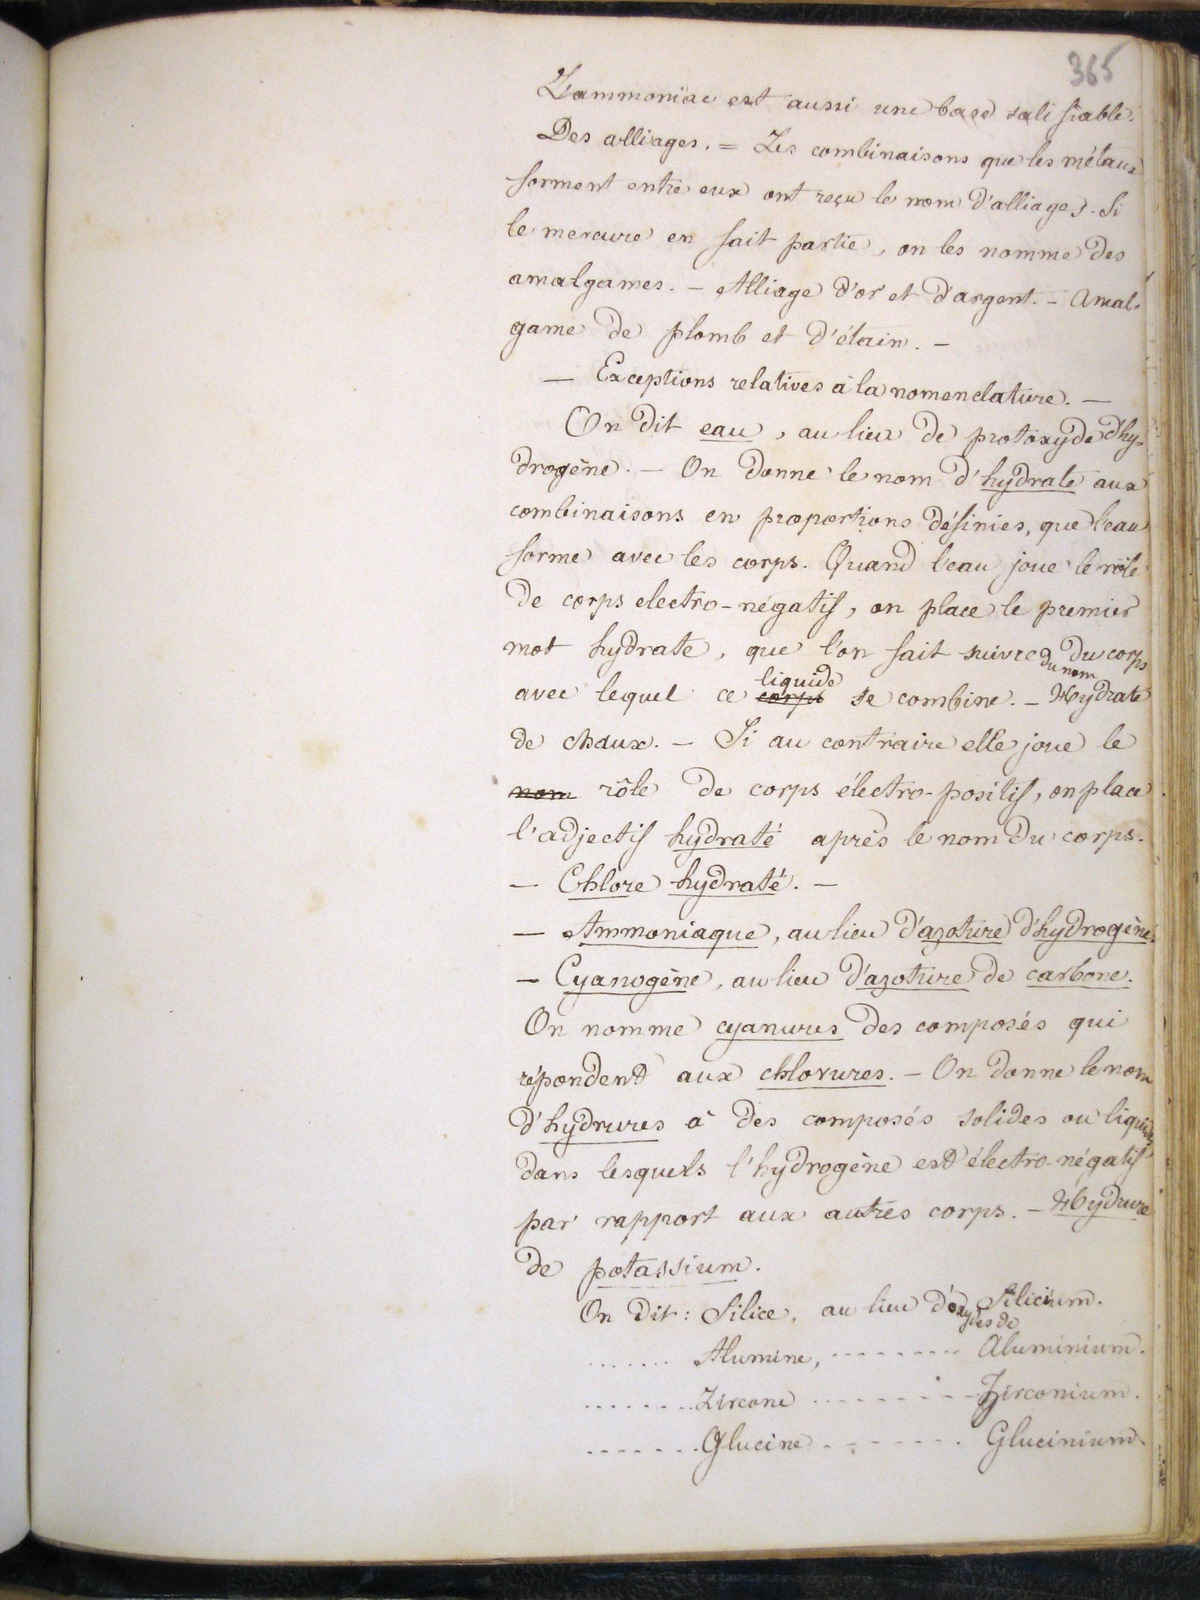 365
L'ammoniac est aussi une base salifiable.
Des alliages. = Les combinaisons que les métaux
forment entre eux ont reçu le nom d'alliages. Si
le mercure en fait partie, on les nomme des
amalgames. — Alliage d'or et d'argent. — Amal-
game de plomb et d'étain. —
— Exceptions relatives à la nomenclature. —
On dit eau, au lieu de protoxyde d'hy-
drogène. — On donne le nom d'hydrate aux
combinaisons en proportions définies, que l'eau
forme avec les corps. Quand l'eau joue le rôle
de corps electro-négatif, on place le premier
mot hydrate, que l'on fait suivre du nom du corps
avec lequel ce corps liquide se combine. — Hydrate
de chaux. — Si au contraire elle joue le
nom rôle de corps électro-positif, on place
l'adjectif hydraté après le nom du corps.
— Chlore hydraté. —
— Ammoniaque, au lieu d'azoture d'hydrogène.
— Cyanogène, au lieu d'azoture de carbone.
On nomme cyanures des composés qui
répondent aux chlorures. — On donne le nom
d'hydrures à des composés solides ou liquides
dans lesquels l'hydrogène est électro-négatif
par rapport aux autres corps. — Hydrure
de potassium.
On dit : Silice, au lieu d'oxydes de Silicium.
....... Alumine, --------- Aluminium.
........ Zircone --------- Zirconium.
........ Glucine -------- Glucinium.